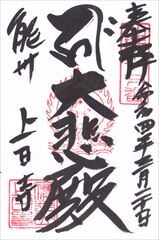 奉拝 令和四年十二月二十日
大悲殿
能州 上日寺